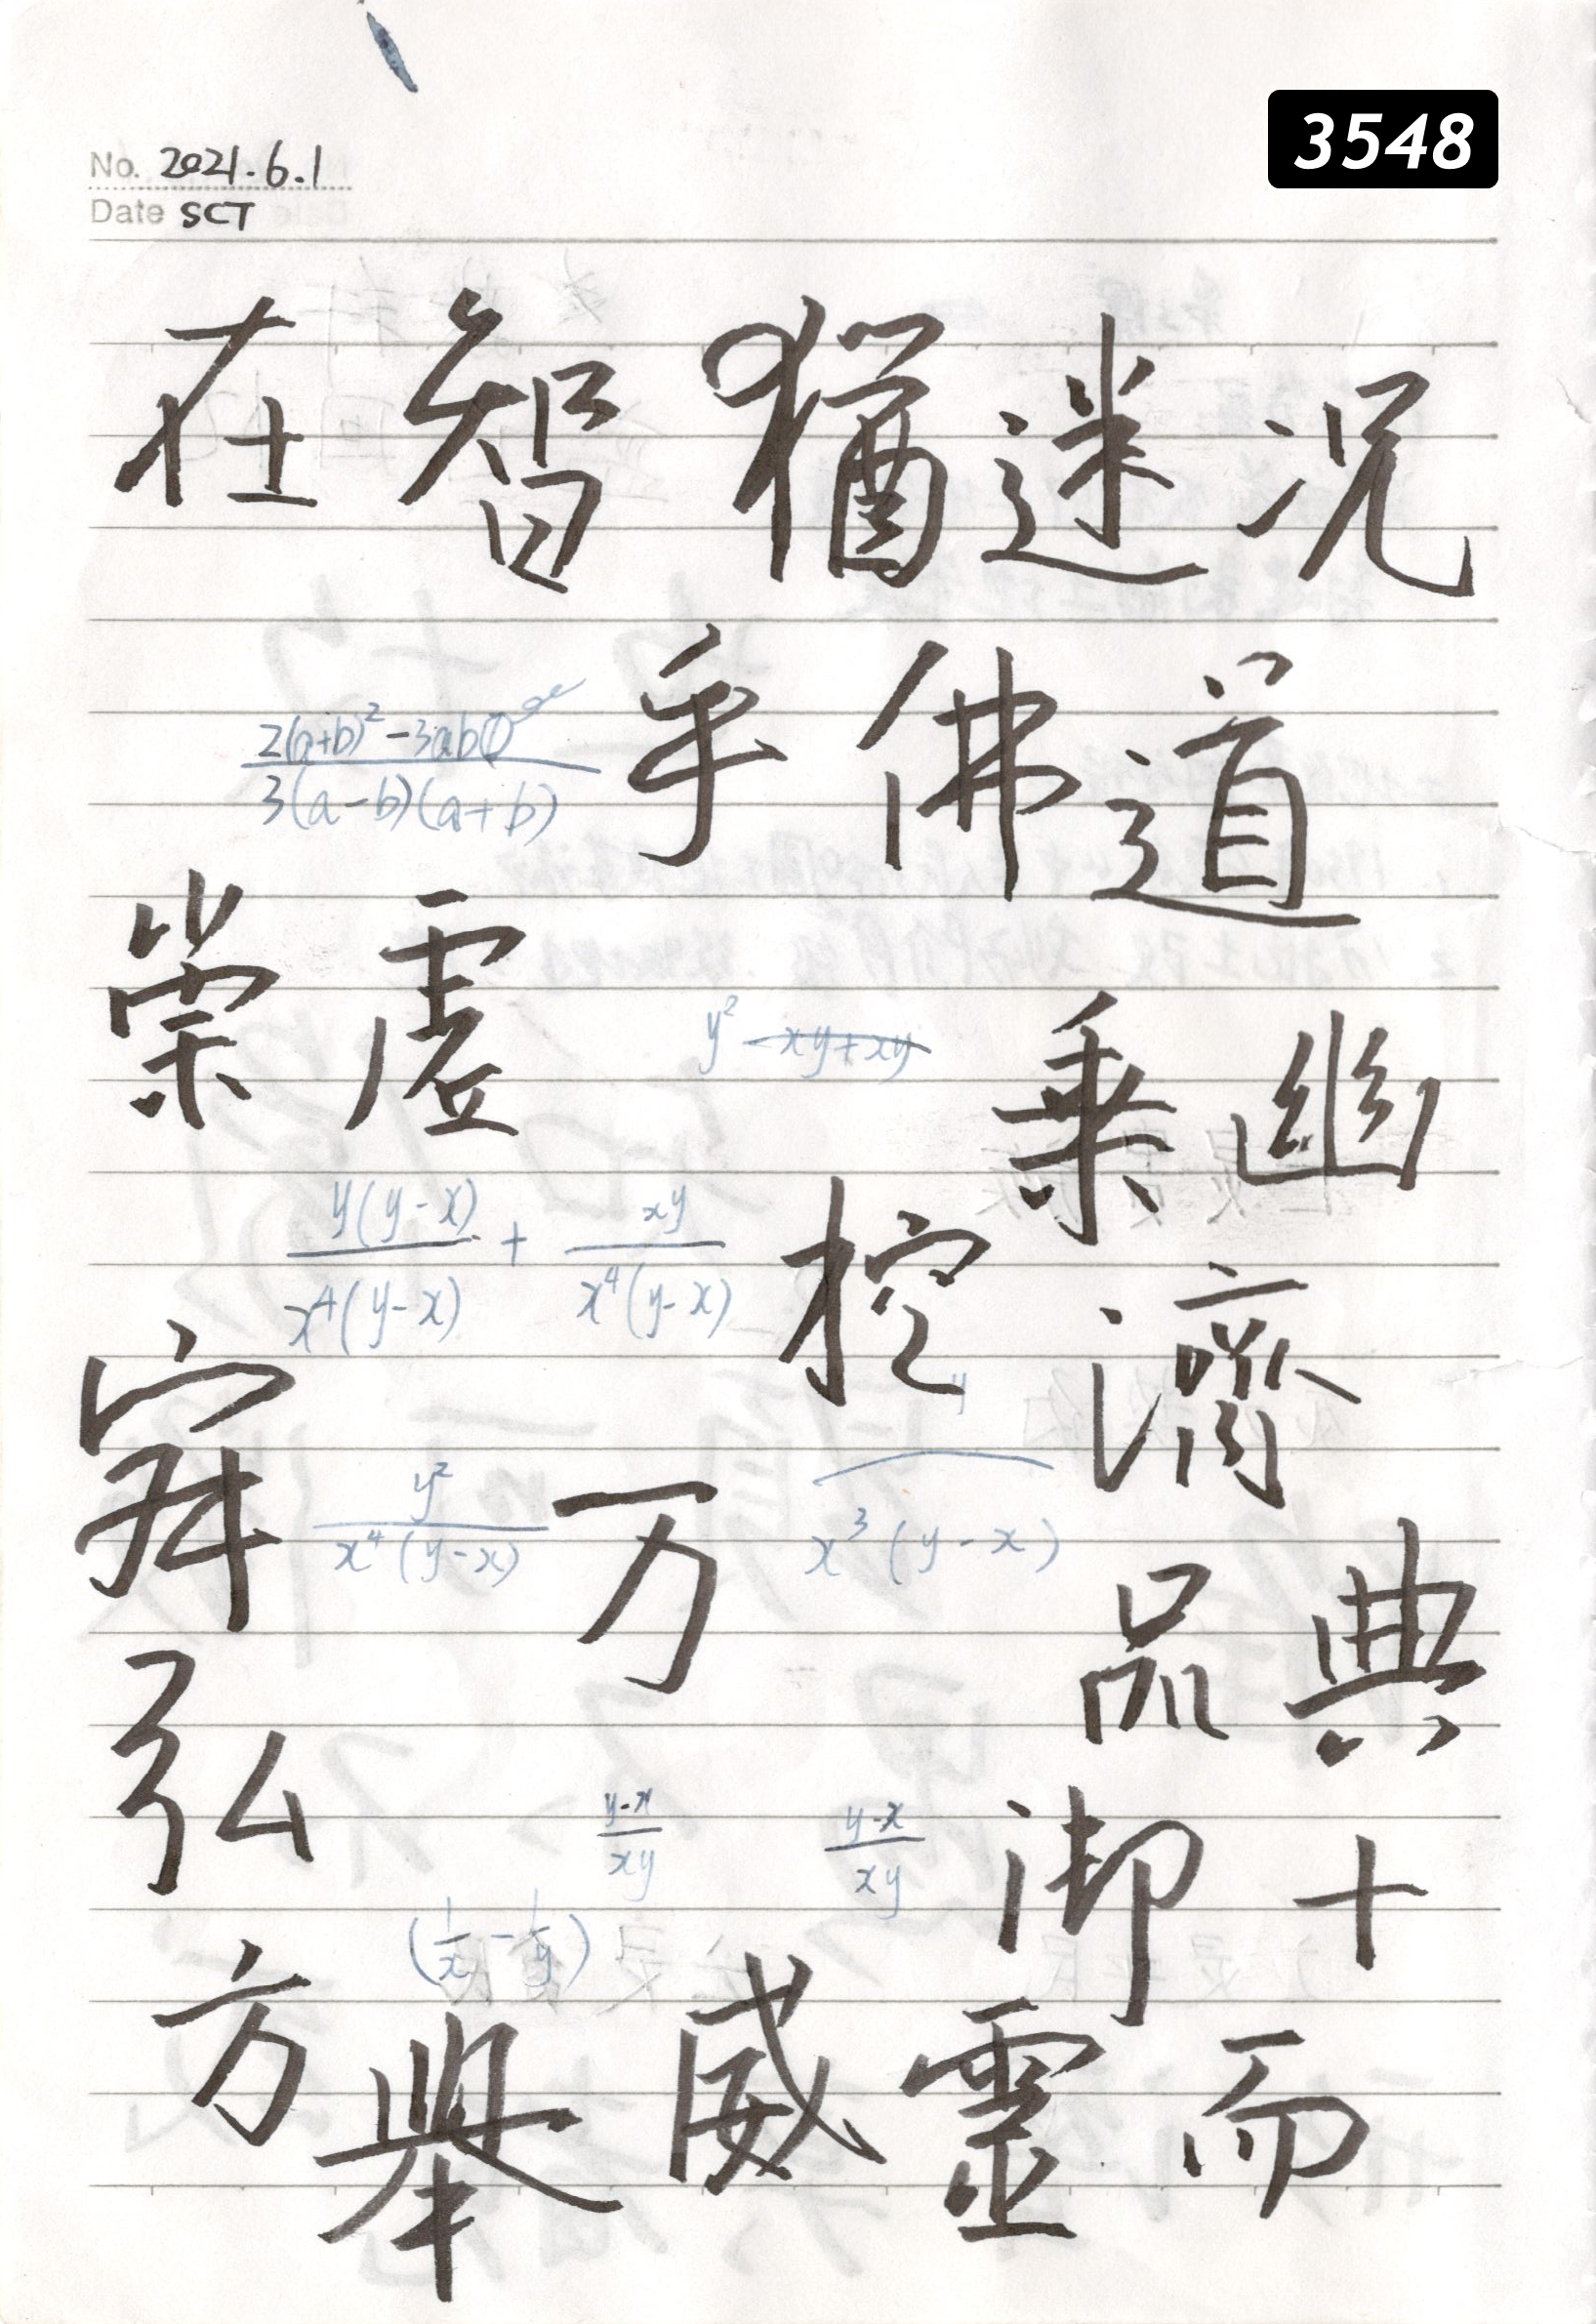 3548
No. 2021.6.1
Date SCT
在智猶迷况
乎佛道
2(a+b)²-3ab
3(a-b)(a+b)
崇虛
y²-xy+xy
乗幽
y(y-x) + xy
x⁴(y-x) x⁴(y-x)
控
濟
寂
y²
x⁴(y-x)
万
y
x³(y-x)
品典
弘
y-x y-x
xy xy
御十
(1/x-1/y)
方舉威靈而